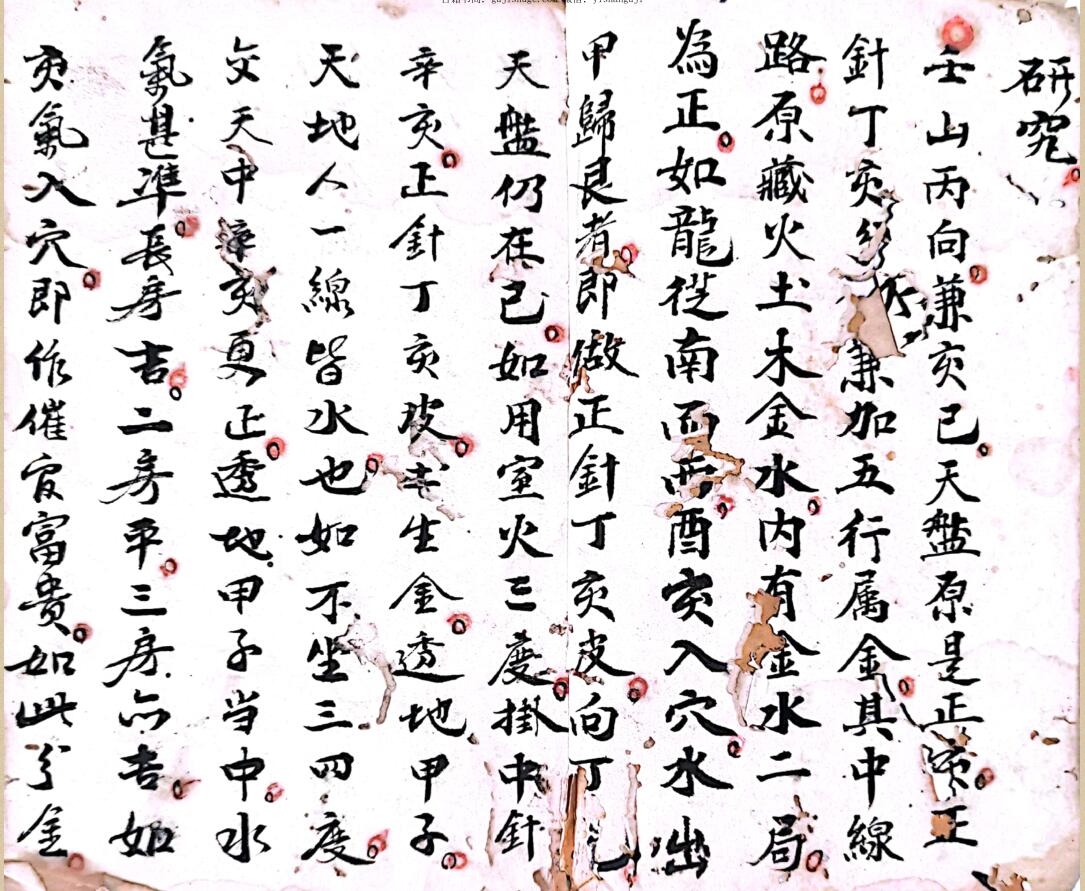 研究
壬山丙向兼亥巳天盤原是正亥正
針丁亥兼加五行属金其中線
路原藏火土木金水内有金水二局
為正如龍従南而西酉亥入穴水出
甲歸艮者即做正針丁亥皮向丁
天盤仍在巳如用室火三度掛中針
辛亥正針丁亥皮生金透地甲子
天地人一線皆水也如不坐三四度
文天中辛亥更正透地甲子当中水
氣甚準長房吉二房平三房亦吉如
亥氣入穴即作催官富貴如此分金